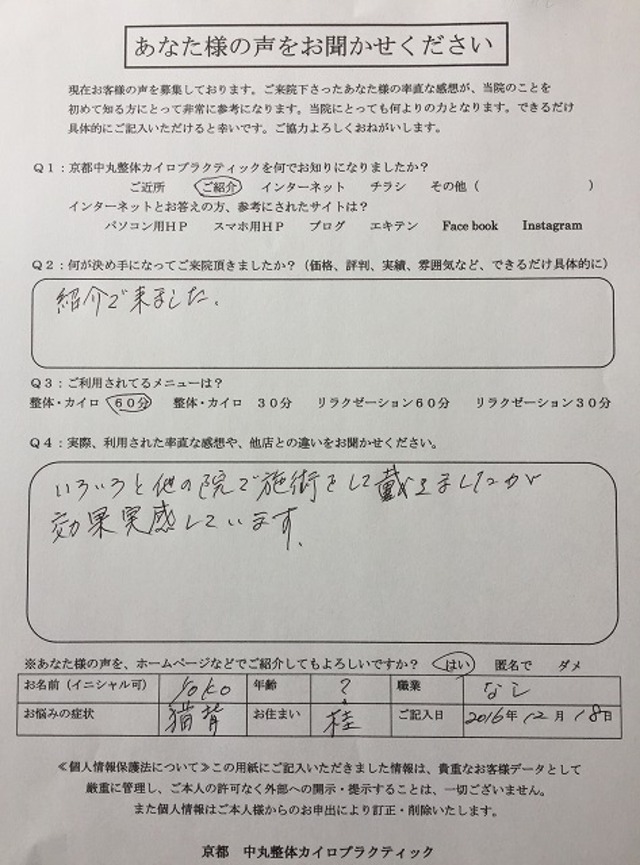 あなた様の声をお聞かせください
現在お客様の声を募集しております。ご来院下さったあなた様の率直な感想が、当院のことを
初めて知る方にとって非常に参考になります。当院にとっても何よりの力となります。できるだけ
具体的にご記入いただけると幸いです。ご協力よろしくおねがいします。
Q1：京都中丸整体カイロプラクティックを何でお知りになりましたか？
ご近所 ご紹介 インターネット チラシ その他（ ）
インターネットとお答えの方、参考にされたサイトは？
パソコン用HP スマホ用HP ブログ エキテン Face book Instagram
Q2：何が決め手になってご来院頂きましたか？（価格、評判、実績、雰囲気など、できるだけ具体的に）
紹介で来ました。
Q3：ご利用されてるメニューは？
整体・カイロ 60分 整体・カイロ 30分 リラクゼーション60分 リラクゼーション30分
Q4：実際、利用された率直な感想や、他店との違いをお聞かせください。
いろいろと他の院で施術をして戴きましたが
効果実感しています。
※あなた様の声を、ホームページなどでご紹介してもよろしいですか？ はい 匿名で ダメ
お名前（イニシャル可） Yoko 年齢 ? 職業 なし
お悩みの症状 猫背 お住まい 桂 ご記入日 2016年 12月 18日
≪個人情報保護法について≫この用紙にご記入いただきました情報は、貴重なお客様データとして
厳重に管理し、ご本人の許可なく外部への開示・提示することは、一切ございません。
また個人情報はご本人様からのお申出により訂正・削除いたします。
京都 中丸整体カイロプラクティック